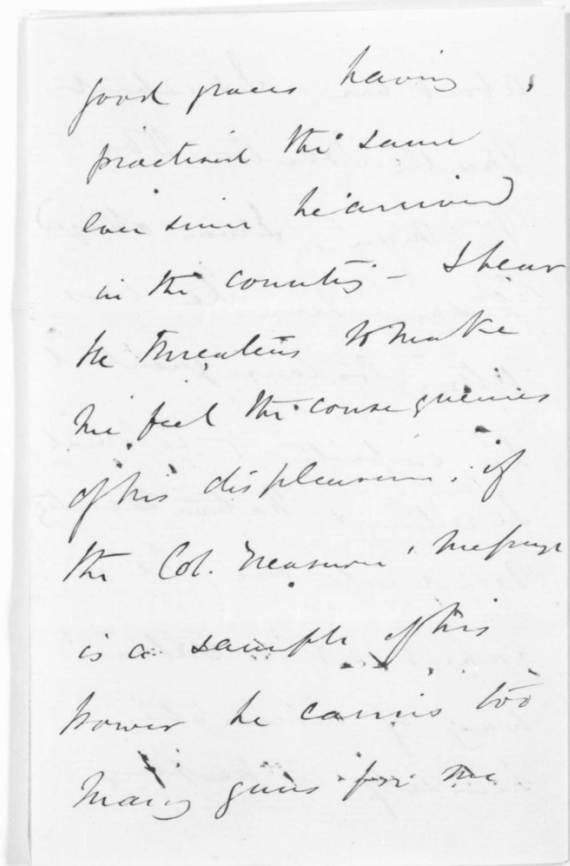 good graces having
practised the same
ever since he arrived
in the country – I hear
he threatens to make
me feel the consequences
of his displeasure, if
the Col. Treasurer's message
is a sample of his
power he carries too
many guns for me